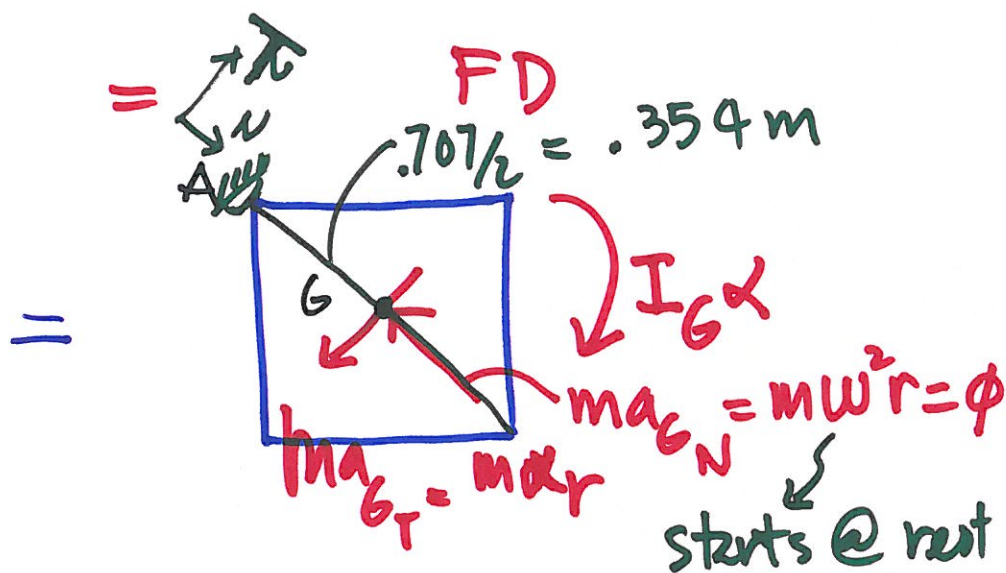 = +T FD
N
.707/2 = .354 m
A
G
I_G α
=
ma_G_N = mω²r = ϕ
ma_G_T = mαr
starts @ rest